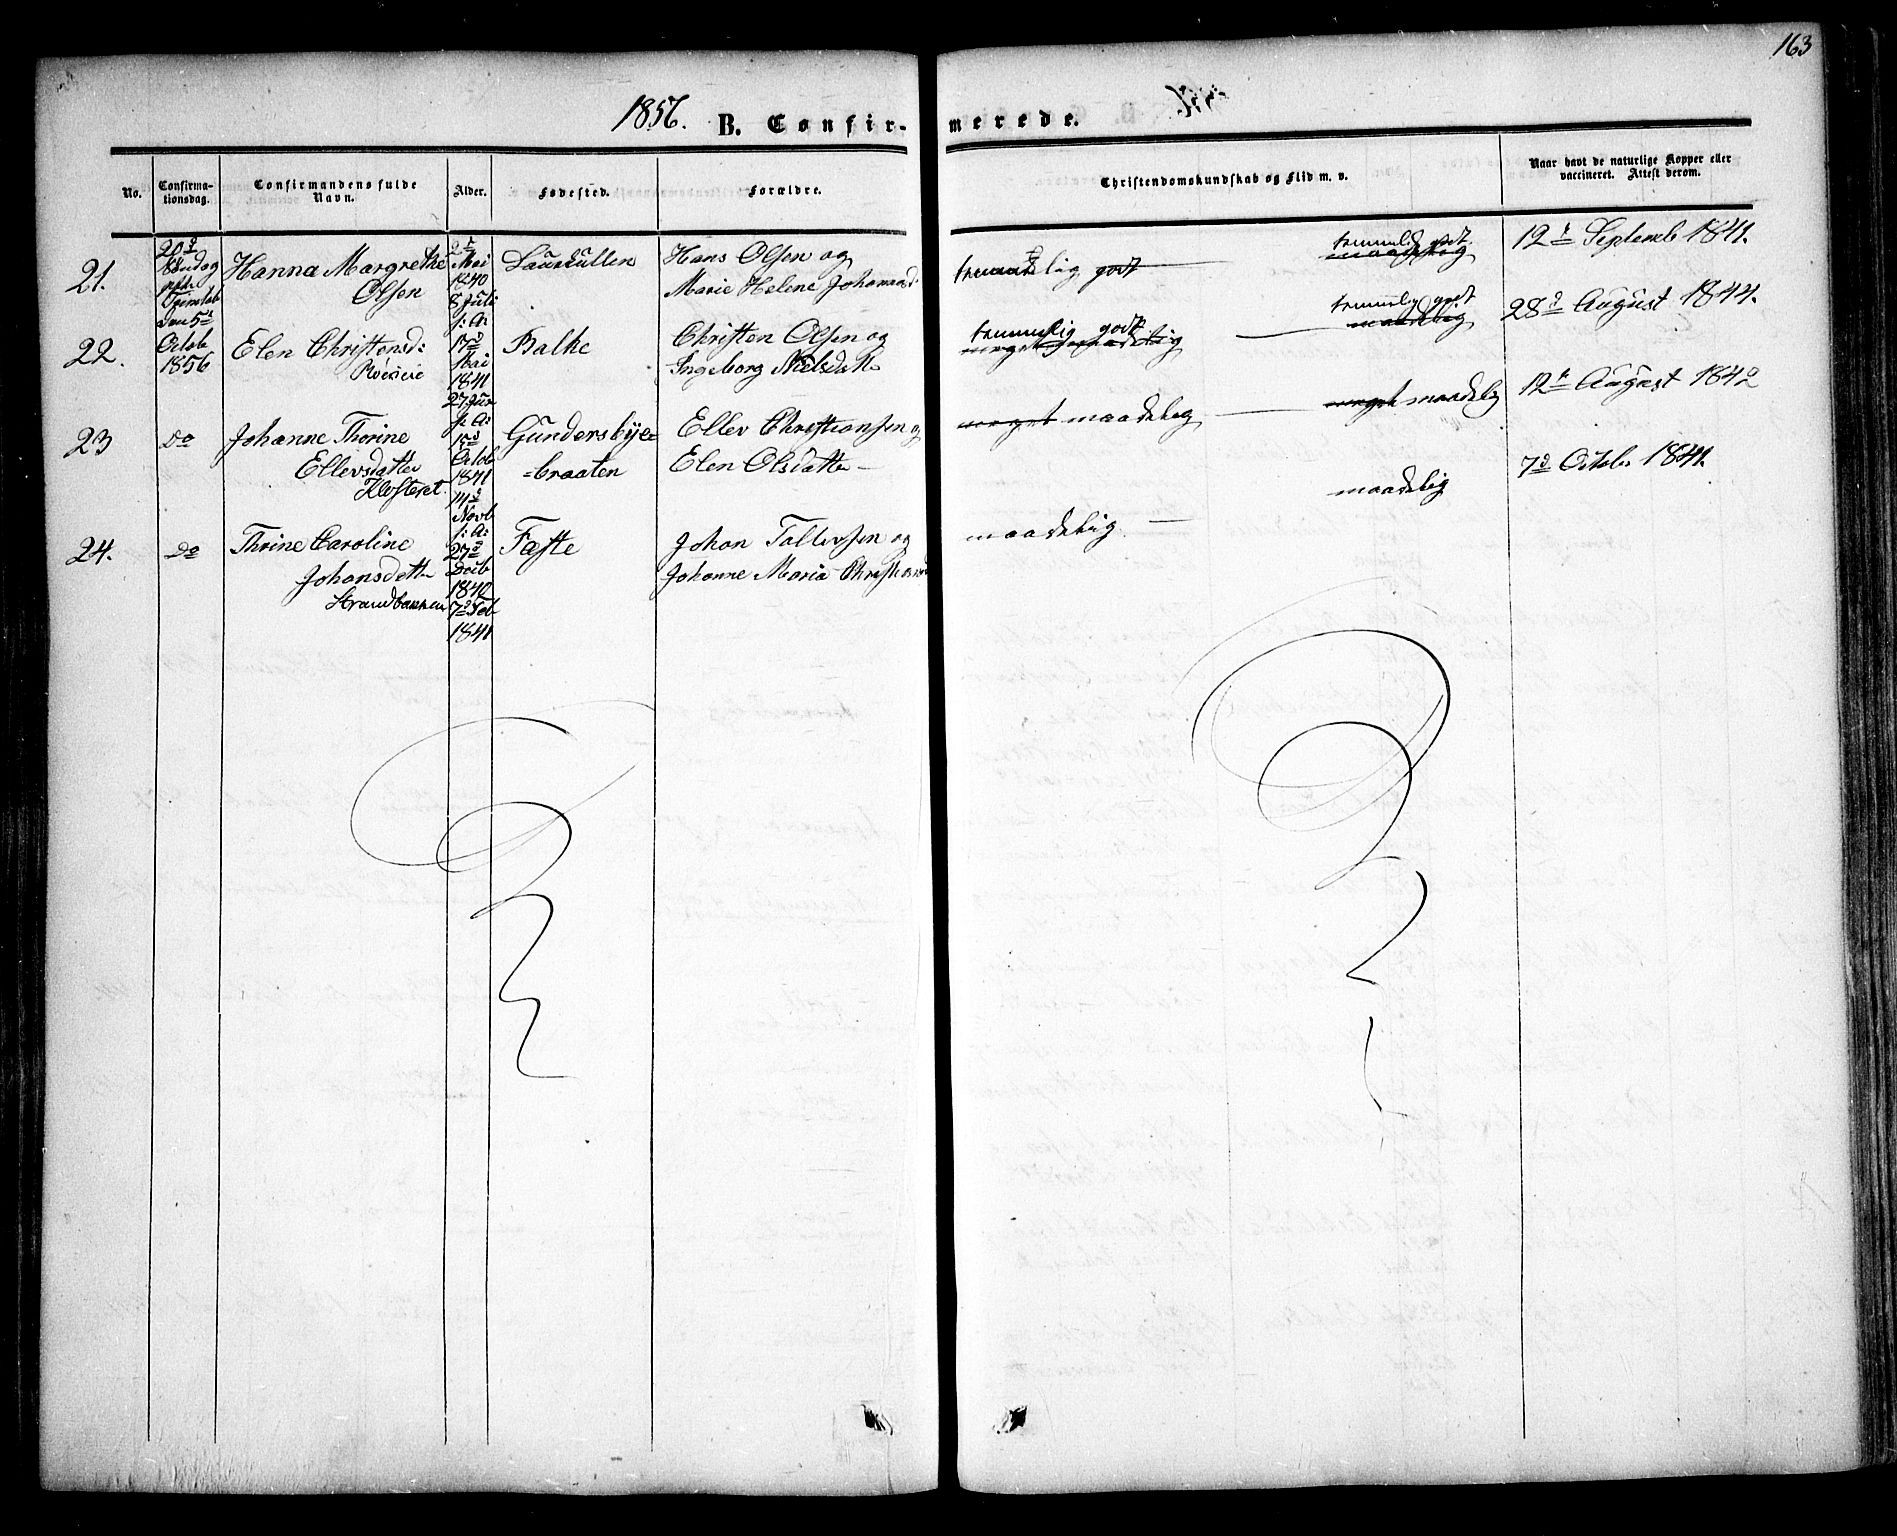 163
1856. B. Confir-merede.
No.
Confirma-
tionsdag.
Confirmandens fulde
Navn.
Alder.
Fødested.
Forældre.
Christendomskundskab og Flid m. v.
Naar havt de naturlige Kopper eller
vaccineret. Attest derom.
21.
20de
Søndag
den 5te
Octob
1856
Hanna Margrethe
Olsen
2den
Mai
1840
8 Juli
s: A:
Hans Olsen og
Marie Helene Johannesd:
temmelig godt
temmelig godt
maadelig
12te Septemb 1841.
22.
Elen Christensd:
17de
Mai
1841
27. Jun
s: A:
Balke
Christen Olsen og
Ingeborg Nielsdatter
temmelig godt
meget maadelig
temmelig godt
maadelig
28de August 1844.
23
Do
Johanne Thorine
Ellevsdatter
Klosteret
Octob
1841
14de
Novb
s: A:
Gundersbye=
=braaten
Ellev Christiansen og
Elen Olsdatter
meget maadelig
meget maadelig
12te August 1842
24.
Do
Thrine Caroline
Johansdatter
Strandbakken
27de
Decb
1840
7de Feb
1841
Faste
Johan Tollevsen og
Johanne Maria Christiansd
maadelig
maadelig
7de Octob. 1841.